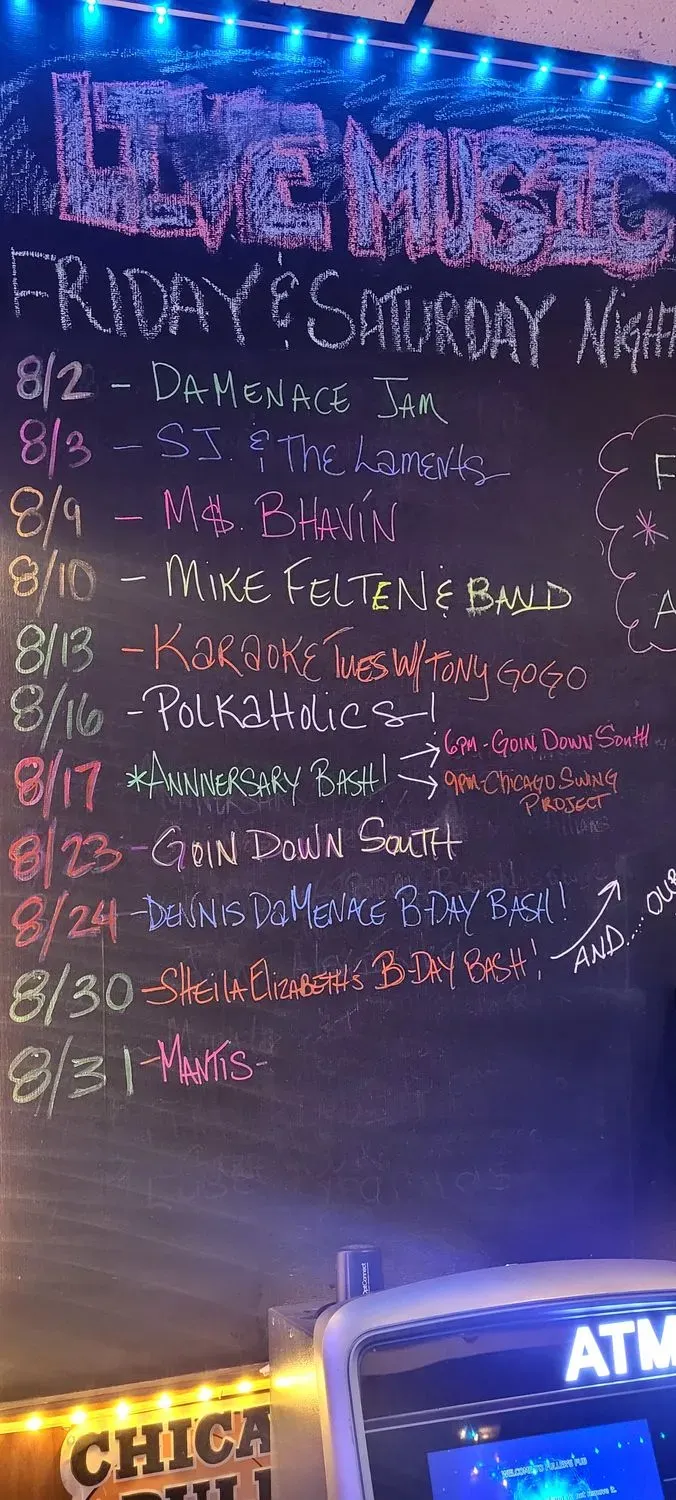 LIVE MUSIC
FRIDAY & SATURDAY NIGHT
8/2 - DAMENACE JAM
8/3 - SJ. & THE LAMENTS
8/9 - M$. BHAVIN
8/10 - MIKE FELTEN & BAND
8/13 - KARAOKE TUES W/ TONY GOGO
8/16 - POLKAHOLICS!
8/17 *ANNIVERSARY BASH!
6PM - GOIN DOWN SOUTH
9PM - CHICAGO SWING
PROJECT
8/23 - GOIN DOWN SOUTH
8/24 - DENNIS DAMENACE B-DAY BASH!
8/30 - SHEILA ELIZABETH'S B-DAY BASH!
AND.... OUR
8/31 - MANTIS -
F
A
OptConnect
ATM
CHICA
BULL
WELCOME TO FULLERS PUB
not remove it.